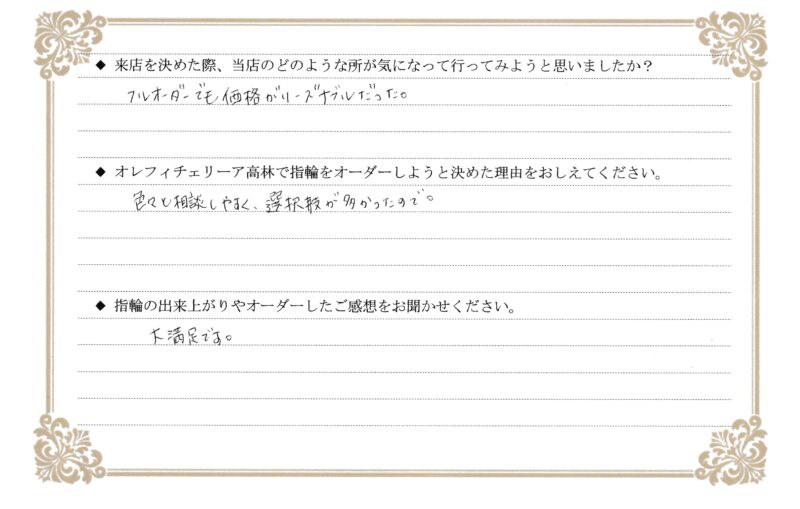 ◆ 来店を決めた際、当店のどのような所が気になって行ってみようと思いましたか？
フルオーダーでも価格がリーズナブルだった。
◆ オレフィチェリーア高林で指輪をオーダーしようと決めた理由をおしえてください。
色々と相談しやすく、選択肢が多かったので。
◆ 指輪の出来上がりやオーダーしたご感想をお聞かせください。
大満足です。